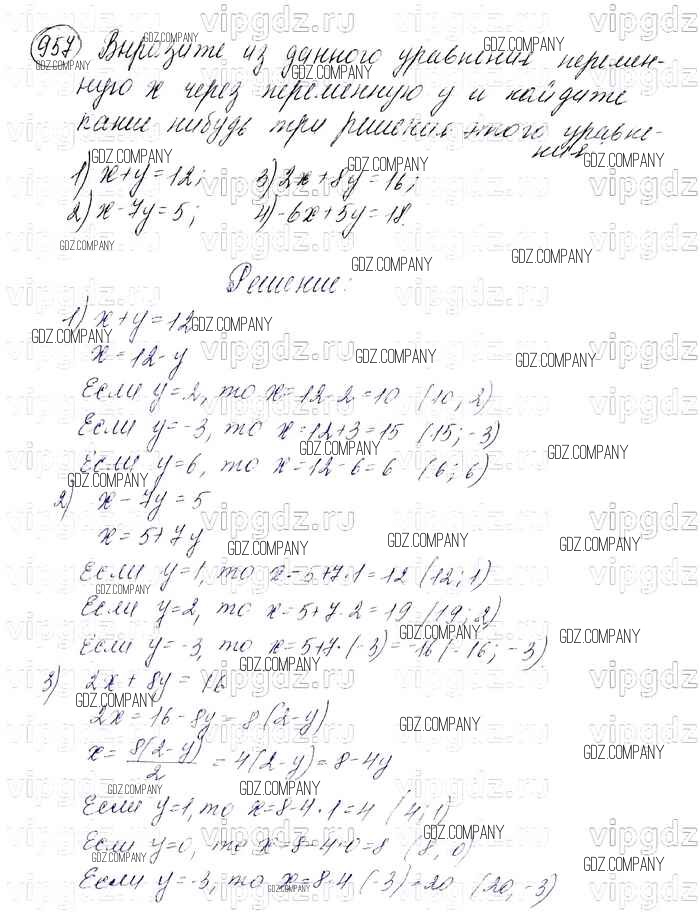 957 Выразите из данного уравнения перемен-
ную x через переменную y и найдите
какие нибудь три решения этого уравне-
ния.
1) x+y=12; 3) 2x+8y=16;
2) x-7y=5; 4) -6x+5y=18.
Решение:
1) x+y=12
x=12-y
Если y=2, то x=12-2=10 (10; 2)
Если y=-3, то x=12+3=15 (15; -3)
Если y=6, то x=12-6=6 (6; 6)
2) x-7y=5
x=5+7y
Если y=1, то x=5+7·1=12 (12; 1)
Если y=2, то x=5+7·2=19 (19; 2)
Если y=-3, то x=5+7·(-3)=-16 (-16; -3)
3) 2x+8y=16
2x=16-8y=8(2-y)
x=8(2-y)/2=4(2-y)=8-4y
Если y=1, то x=8-4·1=4 (4; 1)
Если y=0, то x=8-4·0=8 (8; 0)
Если y=-3, то x=8-4·(-3)=20 (20; -3)